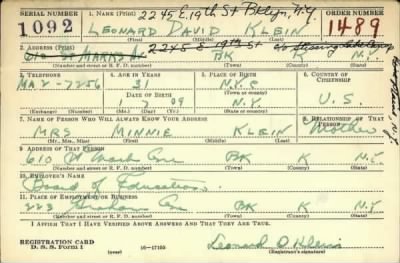 SERIAL NUMBER
1. NAME (Print) 2245 E. 19th St Bklyn, N.Y.
ORDER NUMBER
1092
LEONARD DAVID KLEIN
1489
(First) (Middle) (Last)
2. ADDRESS (Print) 2245 E 19th St
610 St MARKS Av. BK N.Y.
(Number and street or R. F. D. number) (Town) (County) (State)
3. TELEPHONE
4. AGE IN YEARS
5. PLACE OF BIRTH
6. COUNTRY OF CITIZENSHIP
MA 2-7256
31
N.Y.C
DATE OF BIRTH
(Town or county)
1 7 09
N.Y.
U.S.
(Exchange) (Number)
(Mo.) (Day) (Yr.)
(State or country)
7. NAME OF PERSON WHO WILL ALWAYS KNOW YOUR ADDRESS
8. RELATIONSHIP OF THAT PERSON
MRS MINNIE KLEIN Mother
(Mr., Mrs., Miss) (First) (Middle) (Last)
9. ADDRESS OF THAT PERSON
610 St Marks Ave BK K N.Y.
(Number and street or R. F. D. number) (Town) (County) (State)
10. EMPLOYER'S NAME
Board of Education
11. PLACE OF EMPLOYMENT OR BUSINESS
223 Graham Ave BK K N.Y.
(Number and street or R. F. D. number) (Town) (County) (State)
I AFFIRM THAT I HAVE VERIFIED ABOVE ANSWERS AND THAT THEY ARE TRUE.
REGISTRATION CARD
D. S. S. Form 1
16-17105
Leonard D Klein
(Registrant's signature)